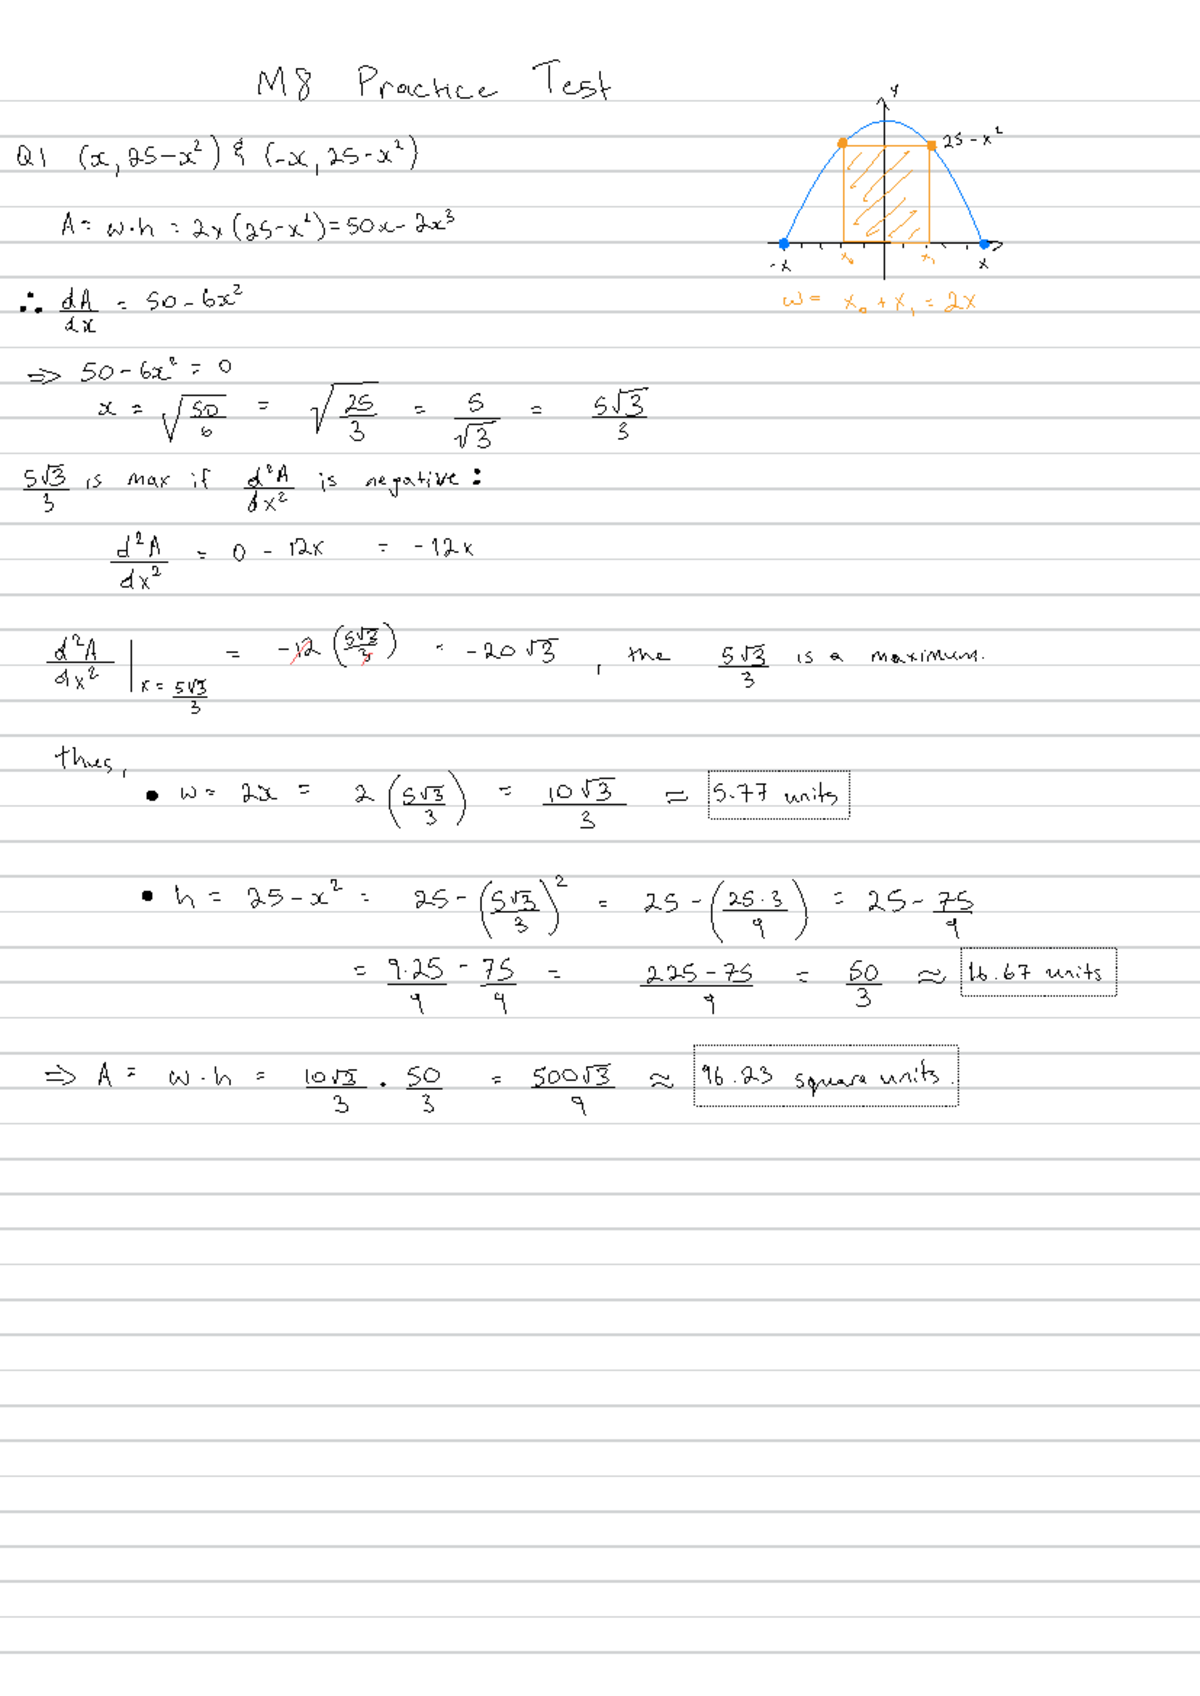 M8 Practice Test
Y
25 - x²
-x x₀ x₁ x
w = x₀ + x₁ = 2x
Q1 (x, 25-x²) & (-x, 25-x²)
A = w·h = 2x(25-x²) = 50x - 2x³
∴ dA/dx = 50 - 6x²
⇒ 50 - 6x² = 0
x = √(50/6) = √(25/3) = 5/√3 = 5√3/3
5√3/3 is max if d²A/dx² is negative:
d²A/dx² = 0 - 12x = -12x
d²A/dx² | x = 5√3/3 = -12 (5√3/3) = -20√3, the 5√3/3 is a maximum.
thus,
• w = 2x = 2(5√3/3) = 10√3/3 ≈ 5.77 units
• h = 25 - x² = 25 - (5√3/3)² = 25 - (25·3/9) = 25 - 75/9
= 9·25/9 - 75/9 = 225-75/9 = 50/3 ≈ 16.67 units
⇒ A = w·h = 10√3/3 · 50/3 = 500√3/9 ≈ 96.23 square units.